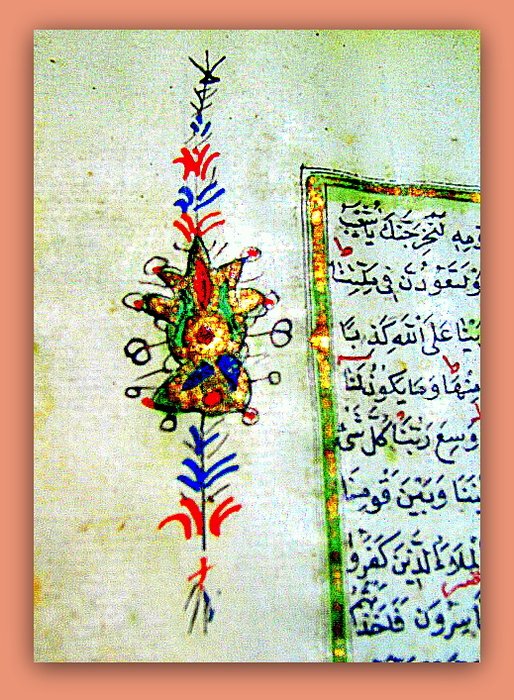 ومه لنخرجنك يا شعيب
او لتعودن في ملتنا
ينا على الله كذبا
منها وما يكون لنا
وسع ربنا كل شئ
بيننا وبين قومنا
الملاء الذين كفروا
اسرون فاخذتهم